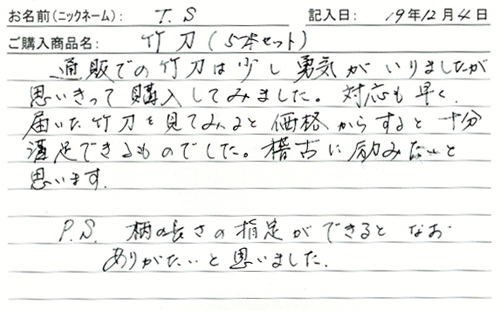 お名前(ニックネーム): T.S 記入日: 19年12月4日
ご購入商品名: 竹刀(5本セット)
通販での竹刀は少し勇気がいりましたが
思いきって購入してみました。対応も早く、
届いた竹刀を見てみると価格からすると十分
満足できるものでした。稽古に励みたいと
思います。
P.S. 柄の長さの指定ができるとなお
ありがたいと思いました。